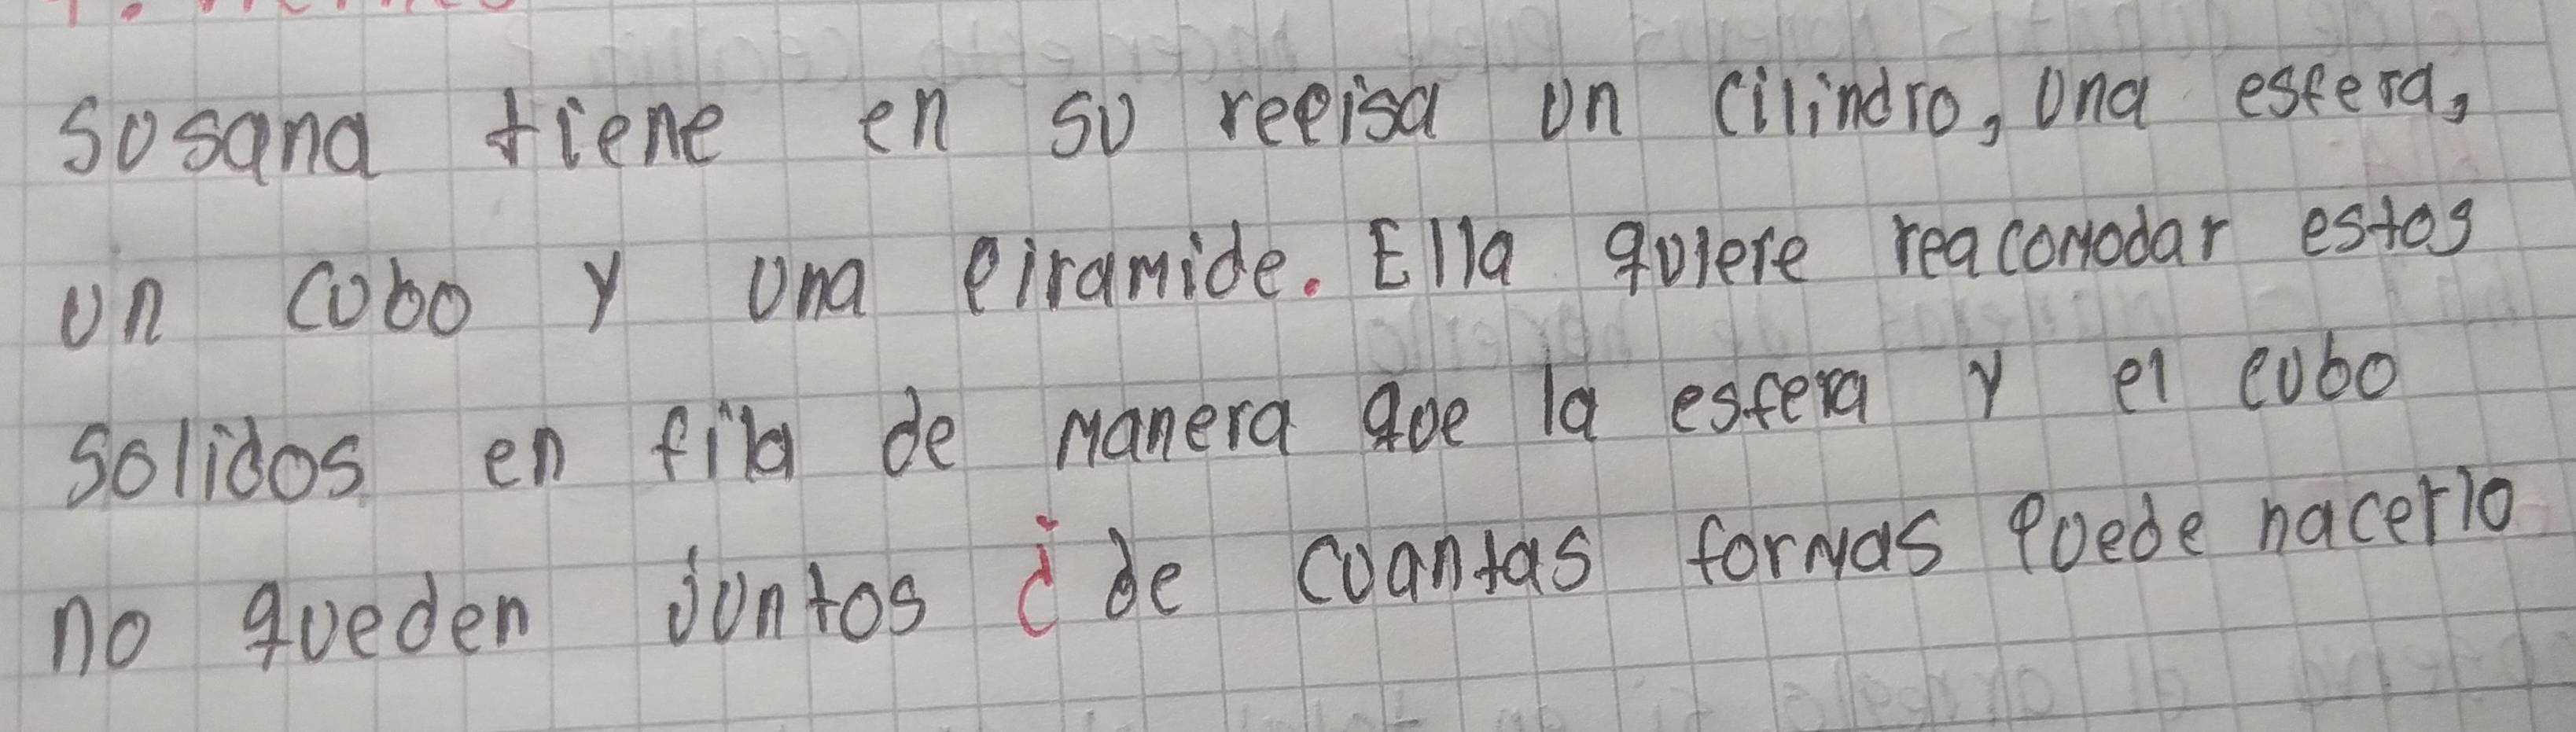 Susana tiene en su repisa un cilindro, una esfera,
un cubo y una piramide. Ella quiere reacomodar estos
solidos en fila de manera que la esfera y el cubo
no queden juntos ¿ de cuantas formas puede hacerlo